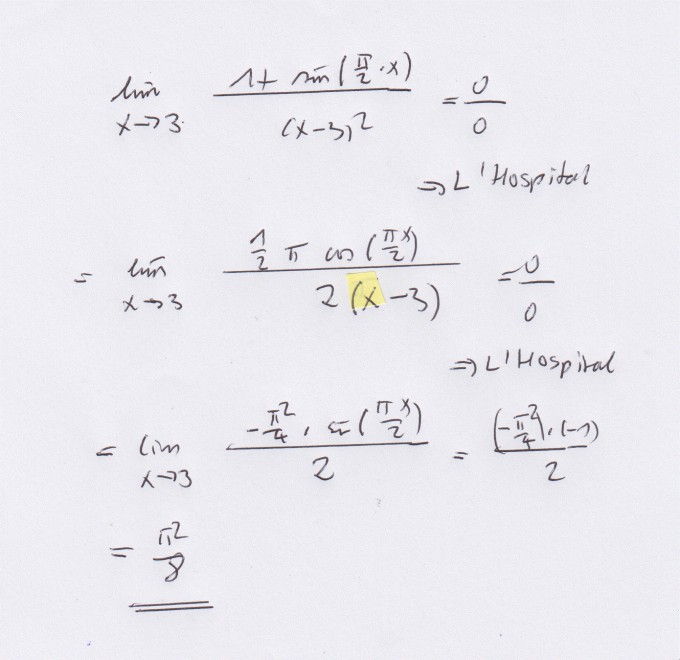 lim x→3 (1 + sin(π/2 · x)) / (x-3)² = 0/0
⇒ L'Hospital
= lim x→3 (1/2 π cos(πx/2)) / (2(x-3)) = 0/0
⇒ L'Hospital
= lim x→3 (-π²/4 · sin(πx/2)) / 2 = ((-π²/4) · (-1)) / 2
= π²/8